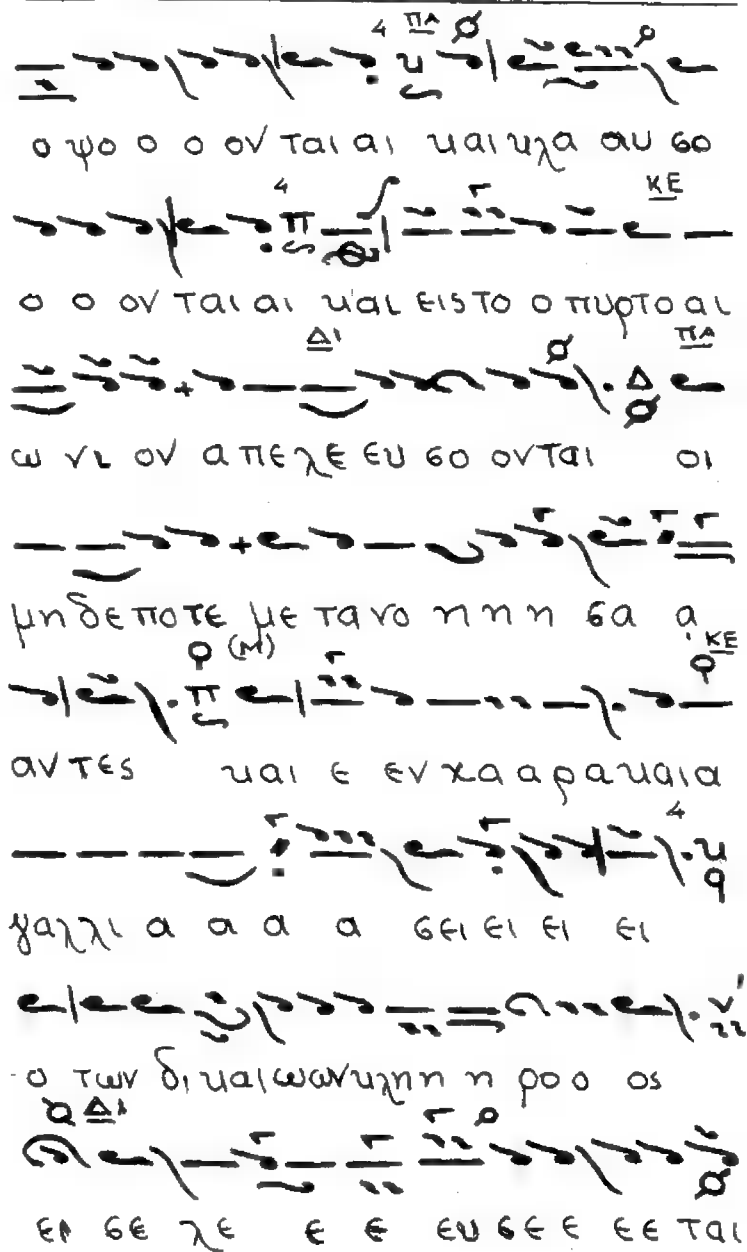 4 ΠΑ
ο ψο ο ο ον ται αι και κλα αυ σο
4 ΚΕ
ο ο ον ται αι και εις το ο πυρ το αι
ΔΙ ΠΑ
ω νι ον α πε λε ευ σο ονται οι
μη δε πο τε με τα νο η η η σα α
(Μ) ΚΕ
αν τες και ε εν χα α ρα και α
4
γαλ λι α α α α σει ει ει ει
ο των δι και ω ων κλη η η ρο ο ος
ΔΙ
ει σε λε ε ε ευ σε ε ε ε ται